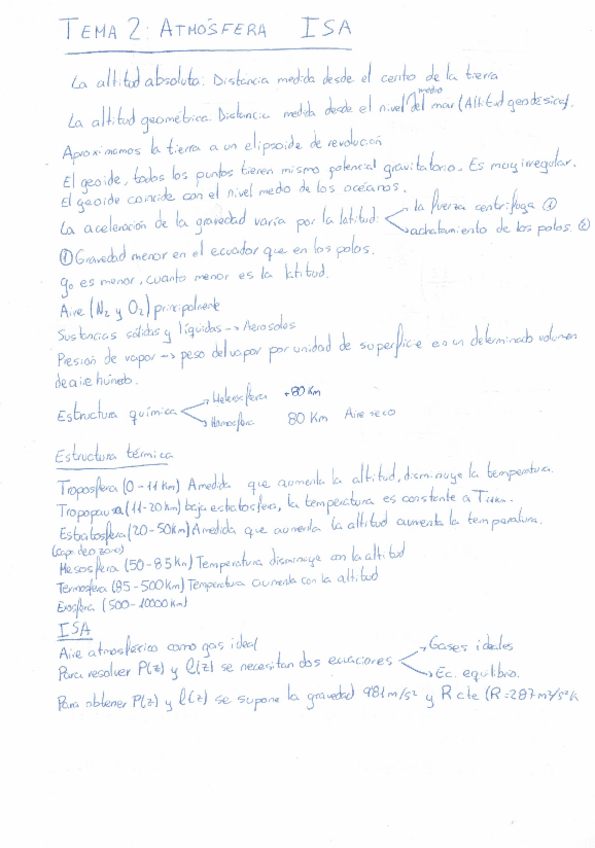 TEMA 2: ATMÓSFERA ISA
La altitud absoluta: Distancia medida desde el centro de la tierra
La altitud geométrica. Distancia medida desde el nivel medio del mar (Altitud geodésica).
Aproximamos la tierra a un elipsoide de revolución
El geoide, todos los puntos tienen mismo potencial gravitatorio. Es muy irregular.
El geoide coincide con el nivel medio de los océanos.
La aceleración de la gravedad varía por la latitud: la fuerza centrífuga ①
achatamiento de los polos. ②
① Gravedad menor en el ecuador que en los polos.
g₀ es menor, cuanto menor es la latitud.
Aire (N₂ y O₂) principalmente
Sustancias sólidas y líquidas → Aerosoles
Presión de vapor → peso del vapor por unidad de superficie en un determinado volumen
de aire húmedo.
Estructura química Heterosfera +80 Km
Homosfera 80 Km Aire seco
Estructura térmica
Troposfera (0-11 Km) A medida que aumenta la altitud, disminuye la temperatura.
Tropopausa (11-20 km) baja estratosfera, la temperatura es constante a
Estratosfera (20-50 Km) A medida que aumenta la altitud aumenta la temperatura.
(capa de ozono)
Mesosfera (50-85 Km) Temperatura disminuye con la altitud
Termosfera (85-500 Km) Temperatura aumenta con la altitud
Exosfera (500-10000 Km)
ISA
Aire atmosférico como gas ideal
Para resolver P(z) y ρ(z) se necesitan dos ecuaciones Gases ideales
Ec. equilibrio.
Para obtener P(z) y ρ(z) se supone la gravedad 9'81 m/s² y R cte (R=287 m²/s²K